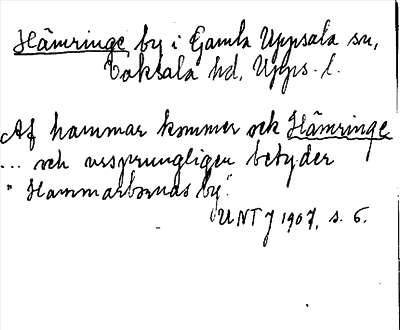 Hämringe by i Gamla Uppsala sn,
Vaksala hd, Upps. l.
Af hammar kommer ock Hämringe
... och ursprungligen betyder
"Hammarbornas by".
UNT J 1907, s. 6.